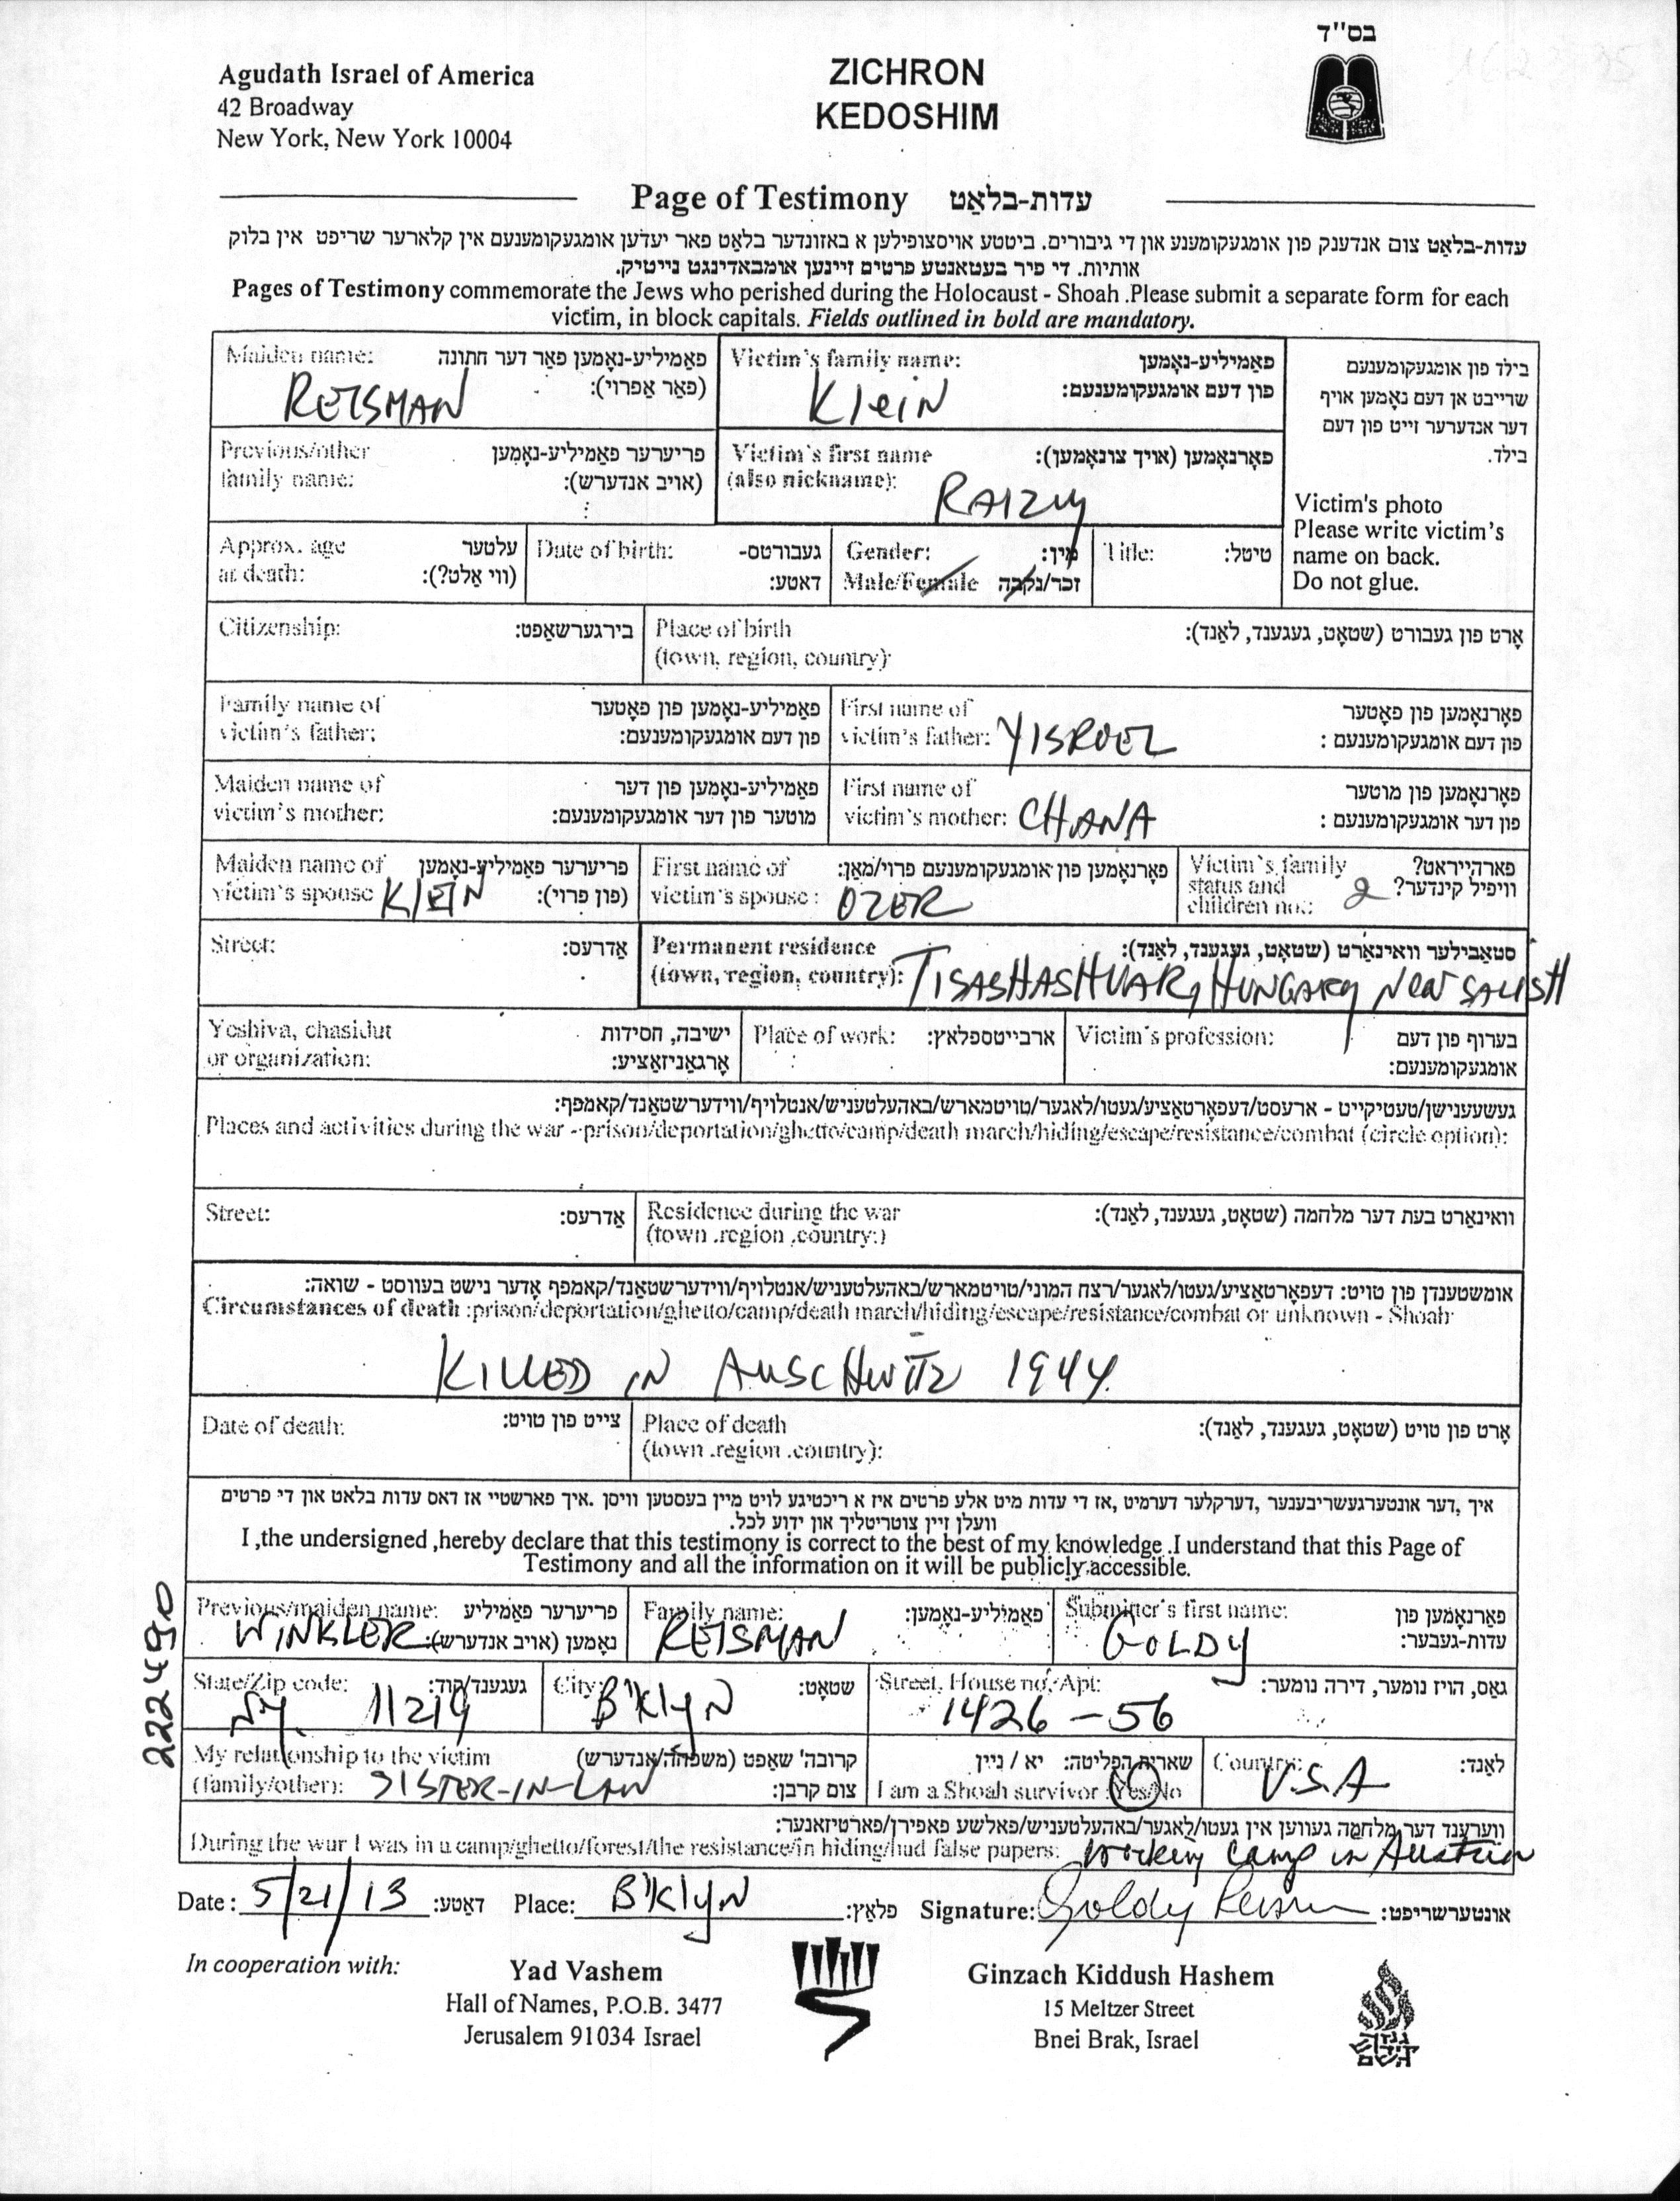 בס"ד
Agudath Israel of America
42 Broadway
New York, New York 10004
ZICHRON
KEDOSHIM
Page of Testimony עדות-בלאַט
עדות-בלאַט צום אנדענק פון אומגעקומענע און די גיבורים. ביטטע אויסצופילען א באזונדער בלאט פאר יעדען אומגעקומענעם אין קלארער שריפט אין בלוק
אותיות. די פיר בעטאנטע פרטים זיינען אומבאדינגט נייטיק.
Pages of Testimony commemorate the Jews who perished during the Holocaust - Shoah .Please submit a separate form for each
victim, in block capitals. Fields outlined in bold are mandatory.
Maiden name: פאַמיליע-נאָמען פאַר דער חתונה
(פאַר אַפרוי):
REISMAN
Victim's family name: פאַמיליע-נאָמען
פון דעם אומגעקומענעם:
Klein
בילד פון אומגעקומענעם
שרייבט אן דעם נאָמען אויף
דער אנדערער זייט פון דעם
בילד.
Victim's photo
Please write victim's
name on back.
Do not glue.
Previous/other פריערער פאַמיליע-נאָמען
family name: (אויב אנדערש):
Victim's first name פאָרנאָמען (אויך צונאָמען):
(also nickname):
RAIZY
Approx. age עלטער
at death: (ווי אַלט?):
Date of birth: געבורטס-
דאטע:
Gender: מין:
Male/Female זכר/נקבה
Title: טיטל:
Citizenship: בירגערשאַפט:
Place of birth אָרט פון געבורט (שטאָט, געגענד, לאַנד):
(town, region, country):
Family name of פאַמיליע-נאָמען פון פאָטער
victim's father: פון דעם אומגעקומענעם:
First name of פאָרנאָמען פון פאָטער
victim's father: YISROEL פון דעם אומגעקומענעם :
Maiden name of פאַמיליע-נאָמען פון דער
victim's mother: מוטער פון דער אומגעקומענעם:
First name of פאָרנאָמען פון מוטער
victim's mother: CHANA פון דער אומגעקומענעם :
Maiden name of פריערער פאַמיליע-נאָמען
victim's spouse KLEIN (פון פרוי):
First name of פאָרנאָמען פון אומגעקומענעם פרוי/מאַן:
victim's spouse : OZER
Victim's family פארהייראט?
status and וויפיל קינדער?
children no.: 2
Street: אַדרעס:
Permanent residence סטאַבילער וואינאָרט (שטאָט, געגענד, לאַנד):
(town, region, country): TISASHASHVARY HUNGARY NEAR SALISH
Yeshiva, chasidut ישיבה, חסידות
or organization: אָרגאַניזאַציע:
Place of work: ארבייטספלאַץ:
Victim's profession: בערוף פון דעם
אומגעקומענעם:
געשעענישן/טעטיקייט - ארעסט/דעפּאָרטאַציע/געטו/לאגער/טויטמארש/באהעלטעניש/אנטלויף/ווידערשטאַנד/קאמפף:
Places and activities during the war - prison/deportation/ghetto/camp/death march/hiding/escape/resistance/combat (circle option):
Street: אַדרעס:
Residence during the war וואינאָרט בעת דער מלחמה (שטאָט, געגענד, לאַנד):
(town .region .country:)
אומשטענדן פון טויט: דעפּאָרטאַציע/געטו/לאגער/רצח המוני/טויטמארש/באהעלטעניש/אנטלויף/ווידערשטאַנד/קאמפף אָדער נישט בעווסט - שואה:
Circumstances of death :prison/deportation/ghetto/camp/death march/hiding/escape/resistance/combat or unknown - Shoah:
KILLED IN AUSCHWITZ 1944.
Date of death: צייט פון טויט:
Place of death אָרט פון טויט (שטאָט, געגענד, לאַנד):
(town .region .country):
איך ,דער אונטערגעשריבענער ,דערקלער דערמיט ,אז די עדות מיט אלע פרטים איז א ריכטיגע לויט מיין בעסטען וויסן .איך פארשטיי אז דאס עדות בלאט און די פרטים
וועלן זיין צוטריטליך און ידוע לכל.
I ,the undersigned ,hereby declare that this testimony is correct to the best of my knowledge .I understand that this Page of
Testimony and all the information on it will be publicly accessible.
Previous/maiden name: פריערער פאַמיליע
WINKLER נאָמען (אויב אנדערש):
Family name: פאַמיליע-נאָמען:
REISMAN
Submitter's first name: פאָרנאָמען פון
עדות-געבער:
GOLDY
State/Zip code: געגענד/קוד:
NY. 11219
City: שטאָט:
B'klyN
Street, House no, Apt: גאַס, הויז נומער, דירה נומער:
1426 - 56
My relationship to the victim קרובה' שאַפט (משפחה/אנדערש)
(family/other): SISTER-IN-LAW צום קרבן:
שארית הפליטה: יא / ניין
I am a Shoah survivor :Yes/No
Country: לאַנד:
U.S.A
ווערענד דער מלחמה געווען אין געטו/לאגער/באהעלטעניש/פאלשע פאפירן/פארטיזאנער:
During the war I was in a camp/ghetto/forest/the resistance/in hiding/had false papers: Working Camp in Austria
Date : 5/21/13 דאטע: Place: B'klyN פלאַץ: Signature: Goldy Reisman אונטערשריפט:
In cooperation with:
Yad Vashem
Hall of Names, P.O.B. 3477
Jerusalem 91034 Israel
Ginzach Kiddush Hashem
15 Meltzer Street
Bnei Brak, Israel
גנזך
קידוש
השם
222490